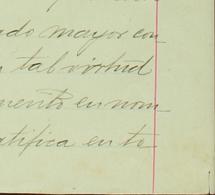 ndo mayor con
tal virtud
mento en nom
atifica en to